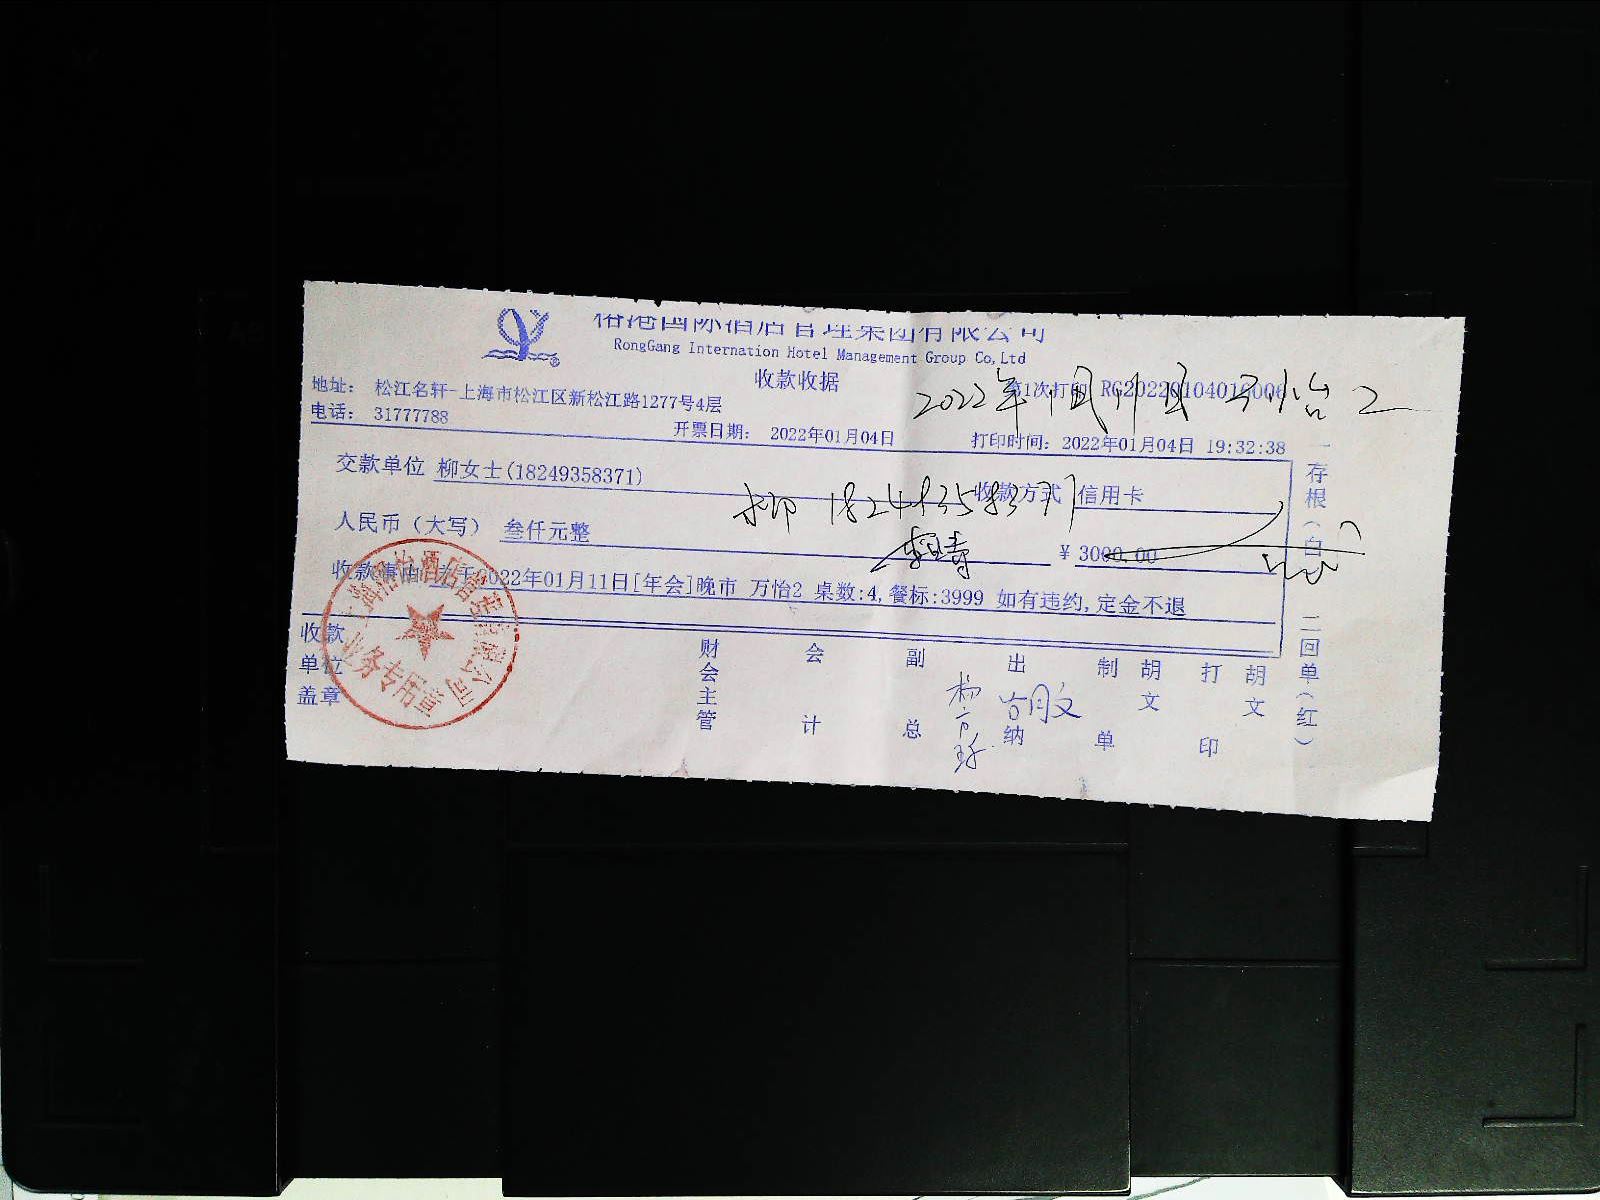 榕港国际酒店管理集团有限公司
RongGang Internation Hotel Management Group Co,Ltd
收款收据
地址： 松江名轩-上海市松江区新松江路1277号4层
第1次打印 RG20220104010006
电话： 31777788
2022年1月11日 万怡2
开票日期： 2022年01月04日
打印时间：2022年01月04日 19:32:38
交款单位 柳女士(18249358371)
收款方式 信用卡
柳 18249358371
人民币（大写） 叁仟元整
￥ 3000.00
收款事由 于2022年01月11日[年会]晚市 万怡2 桌数:4,餐标:3999 如有违约,定金不退
收款单位盖章
财会主管
会计
副总
出纳
制单
胡文
打印
胡文
一存根(白)
二回单(红)
业务专用章